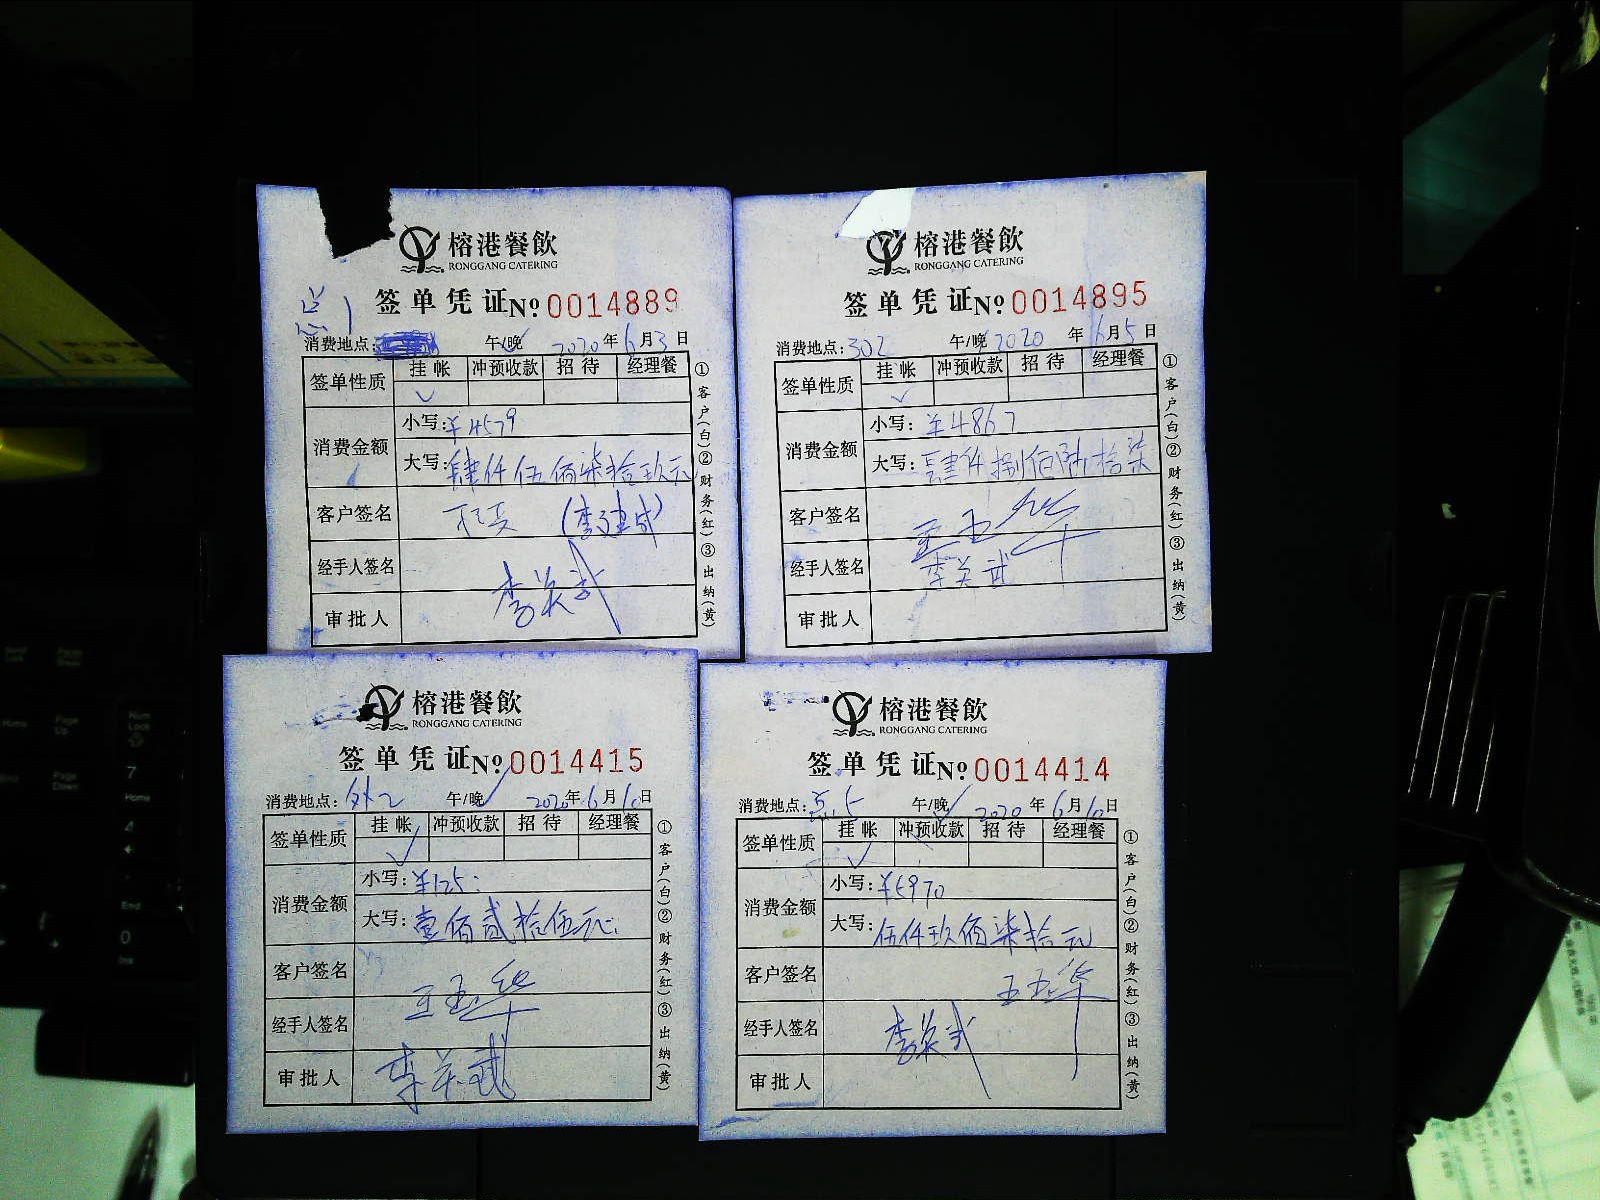 榕港餐飲
RONGGANG CATERING
签单凭证No 0014889
消费地点: 午/晚 2020年6月3日
签单性质 挂帐 冲预收款 招待 经理餐
消费金额
小写:¥4579
大写:肆仟伍佰柒拾玖元
客户签名
经手人签名
审批人
①客户(白)②财务(红)③出纳(黄)
榕港餐飲
RONGGANG CATERING
签单凭证No 0014895
消费地点:302 午/晚 2020年6月5日
签单性质 挂帐 冲预收款 招待 经理餐
消费金额
小写:¥4867
大写:肆仟捌佰陆拾柒
客户签名 王玉华
经手人签名
审批人
①客户(白)②财务(红)③出纳(黄)
榕港餐飲
RONGGANG CATERING
签单凭证No 0014415
消费地点:外2 午/晚 2020年6月10日
签单性质 挂帐 冲预收款 招待 经理餐
消费金额
小写:¥125
大写:壹佰贰拾伍元
客户签名 王玉华
经手人签名
审批人
①客户(白)②财务(红)③出纳(黄)
榕港餐飲
RONGGANG CATERING
签单凭证No 0014414
消费地点: 午/晚 2020年6月10日
签单性质 挂帐 冲预收款 招待 经理餐
消费金额
小写:¥5970
大写:伍仟玖佰柒拾元
客户签名 王玉华
经手人签名
审批人
①客户(白)②财务(红)③出纳(黄)